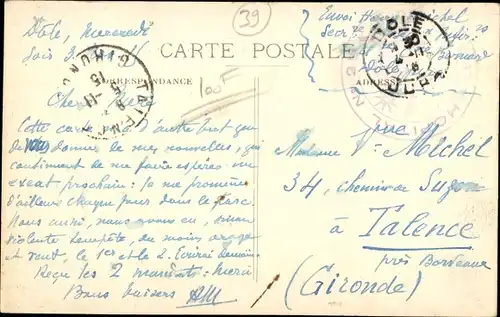 Dole, Mercredi
soir 3
Envoi Henri Michel
39
CARTE POSTALE
CORRESPONDANCE
ADRESSE
100F
DOLE
TALENCE
GIRONDE
Chère Mère
Cette carte n'a d'autre but que
de vous donner de mes nouvelles, qui
continuent de me faire espérer un
exeat prochain: je me promène
d'ailleurs chaque jour dans le parc.
Nous aussi, nous avons eu, sinon
violente tempête, du moins orage
et vent, le 1er et le 2. Écrirai demain.
Reçu les 2 mandats: merci
Bons baisers AM
Madame Vve Michel
34, chemin de Suzon
à Talence
près Bordeaux
(Gironde)